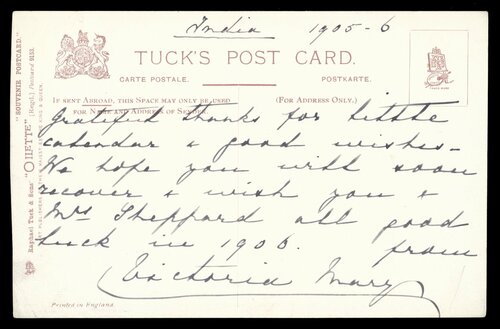 India 1905-6
TUCK'S POST CARD.
CARTE POSTALE. POSTKARTE.
IF SENT ABROAD, THIS SPACE MAY ONLY BE USED
FOR NAME AND ADDRESS OF SENDER.
(FOR ADDRESS ONLY.)
Gratified thanks for little
calendar & good wishes –
We hope you will soon
recover & wish you &
Mrs Sheppard all good
luck in 1906. from
Victoria Mary
Printed in England.
Raphael Tuck & Sons' "OILETTE" [Regd.] Postcard 9153.
"SOUVENIR POSTCARD."